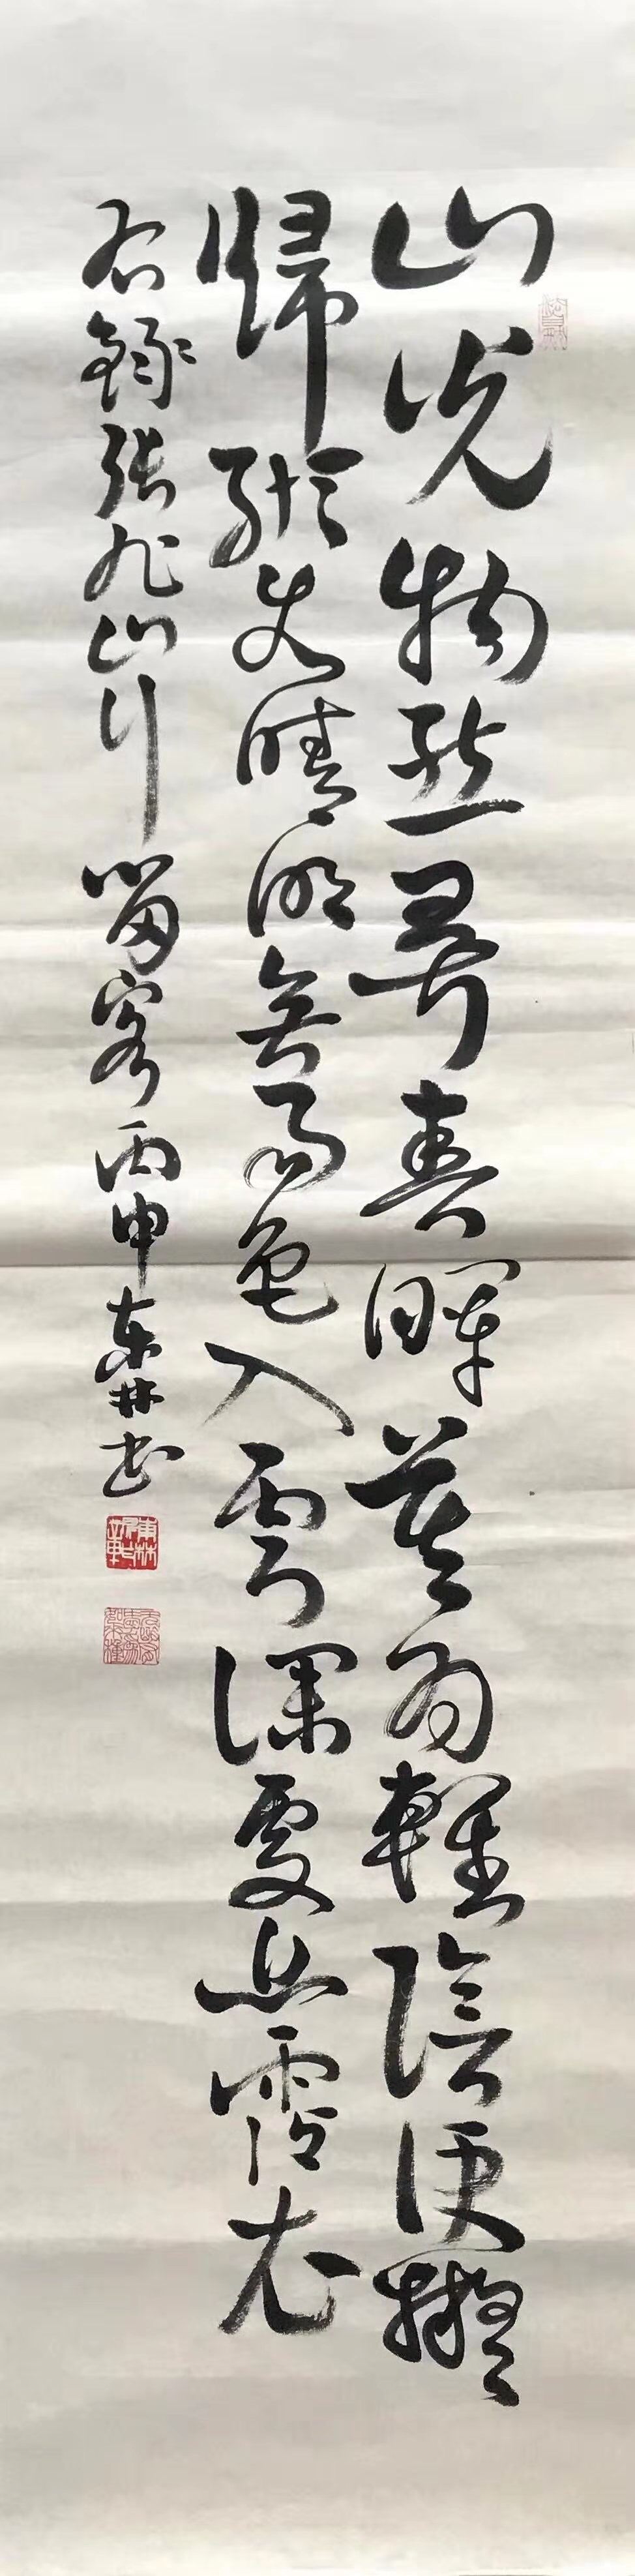 山光物態弄春暉莫為輕陰便擬
歸縱使晴明無雨色入雲深處亦霑衣
右錄張旭山行留客丙申東林書